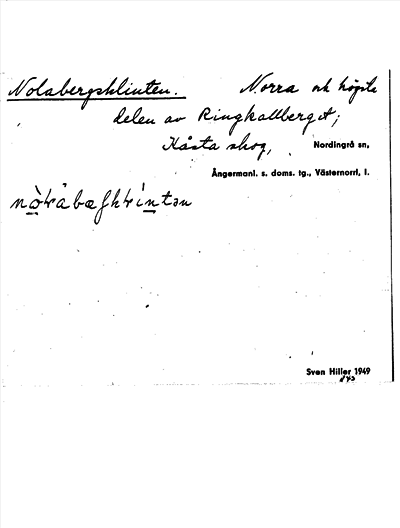 Nolabergsklinten. Norra och högste
delen av Ringkallberget;
Kåsta skog, Nordingrå sn,
Ångermanl. s. doms. tg., Västernorrl, l.
Sven Hiller 1949